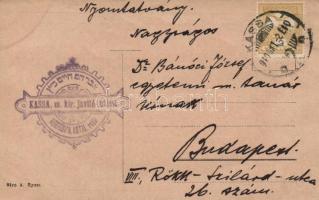 Nyomtatvány.
Nagyságos
Dr Bánóczi József
egyetemi m. tanár
Úrnak
Budapest.
VIII, Rökk-Szilárd-utca
26. szám.
KASSA
KASSA, m. kir. javító intézet